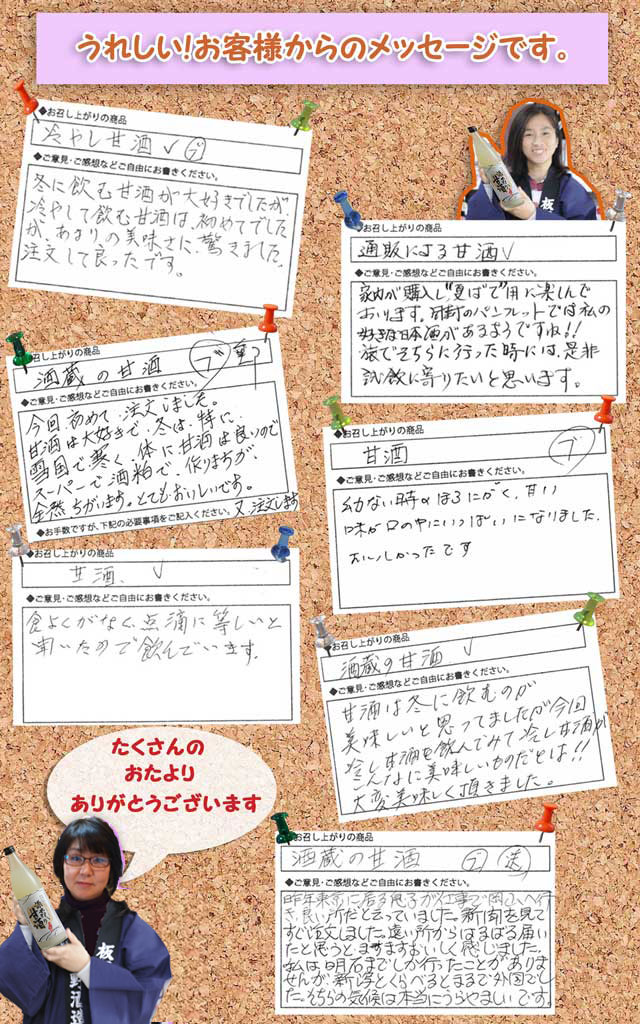 うれしい!お客様からのメッセージです。
◆お召し上がりの商品
冷やし甘酒 ✓ プ
◆ご意見・ご感想などご自由にお書きください。
冬に飲む甘酒が大好きでしたが、
冷やして飲む甘酒は、初めてでした
が、あまりの美味さに、驚きました。
注文して良ったです。
お召し上がりの商品
通販による甘酒 ✓
◆ご意見・ご感想などご自由にお書きください。
家内が購入し"夏ばて"用に楽しんで
おります。同封のパンフレットでは私の
好きな日本酒があるようですね!!
旅でそちらに行った時には、是非
試飲に寄りたいと思います。
お召し上がりの商品
酒蔵の甘酒 プ
◆ご意見・ご感想などご自由にお書きください。
今回初めて、注文しました。
甘酒は大好きで、冬は、特に、
雪国で寒く、体に甘酒は良いので
スーパーで酒粕で、作りますが、
全然ちがいます。とてもおいしいです。
又、注文します
◆お手数ですが、下記の必要事項をご記入ください。
◆お召し上がりの商品
甘酒 プ
◆ご意見・ご感想などご自由にお書きください。
幼ない時のほろにがく、甘い
味が口の中にいっぱいになりました。
おいしかったです
◆お召し上がりの商品
甘酒、 ✓
◆ご意見・ご感想などご自由にお書きください。
食よくがなく、点滴に等しいと
聞いたので飲んでいます。
◆お召し上がりの商品
酒蔵の甘酒 ✓
◆ご意見・ご感想などご自由にお書きください。
甘酒は冬に飲むのが
美味しいと思ってましたが今回
冷し甘酒を飲んでみて冷し甘酒が
こんなに美味しいものだとは!!
大変美味しく頂きました。
たくさんの
おたより
ありがとうございます
お召し上がりの商品
酒蔵の甘酒 プ 送
◆ご意見・ご感想などご自由にお書きください。
昨年東京に居る息子が仕事で岡山へ行
き、良い所だと云っていました。新聞を見て
すぐ注文しました。遠い所からはるばる届い
たと思うとますますおいしく感じました。
私は明石までしか行ったことがありま
せんが新潟とくらべるとまるで外国でし
た。そちらの気候は本当にうらやましいです。